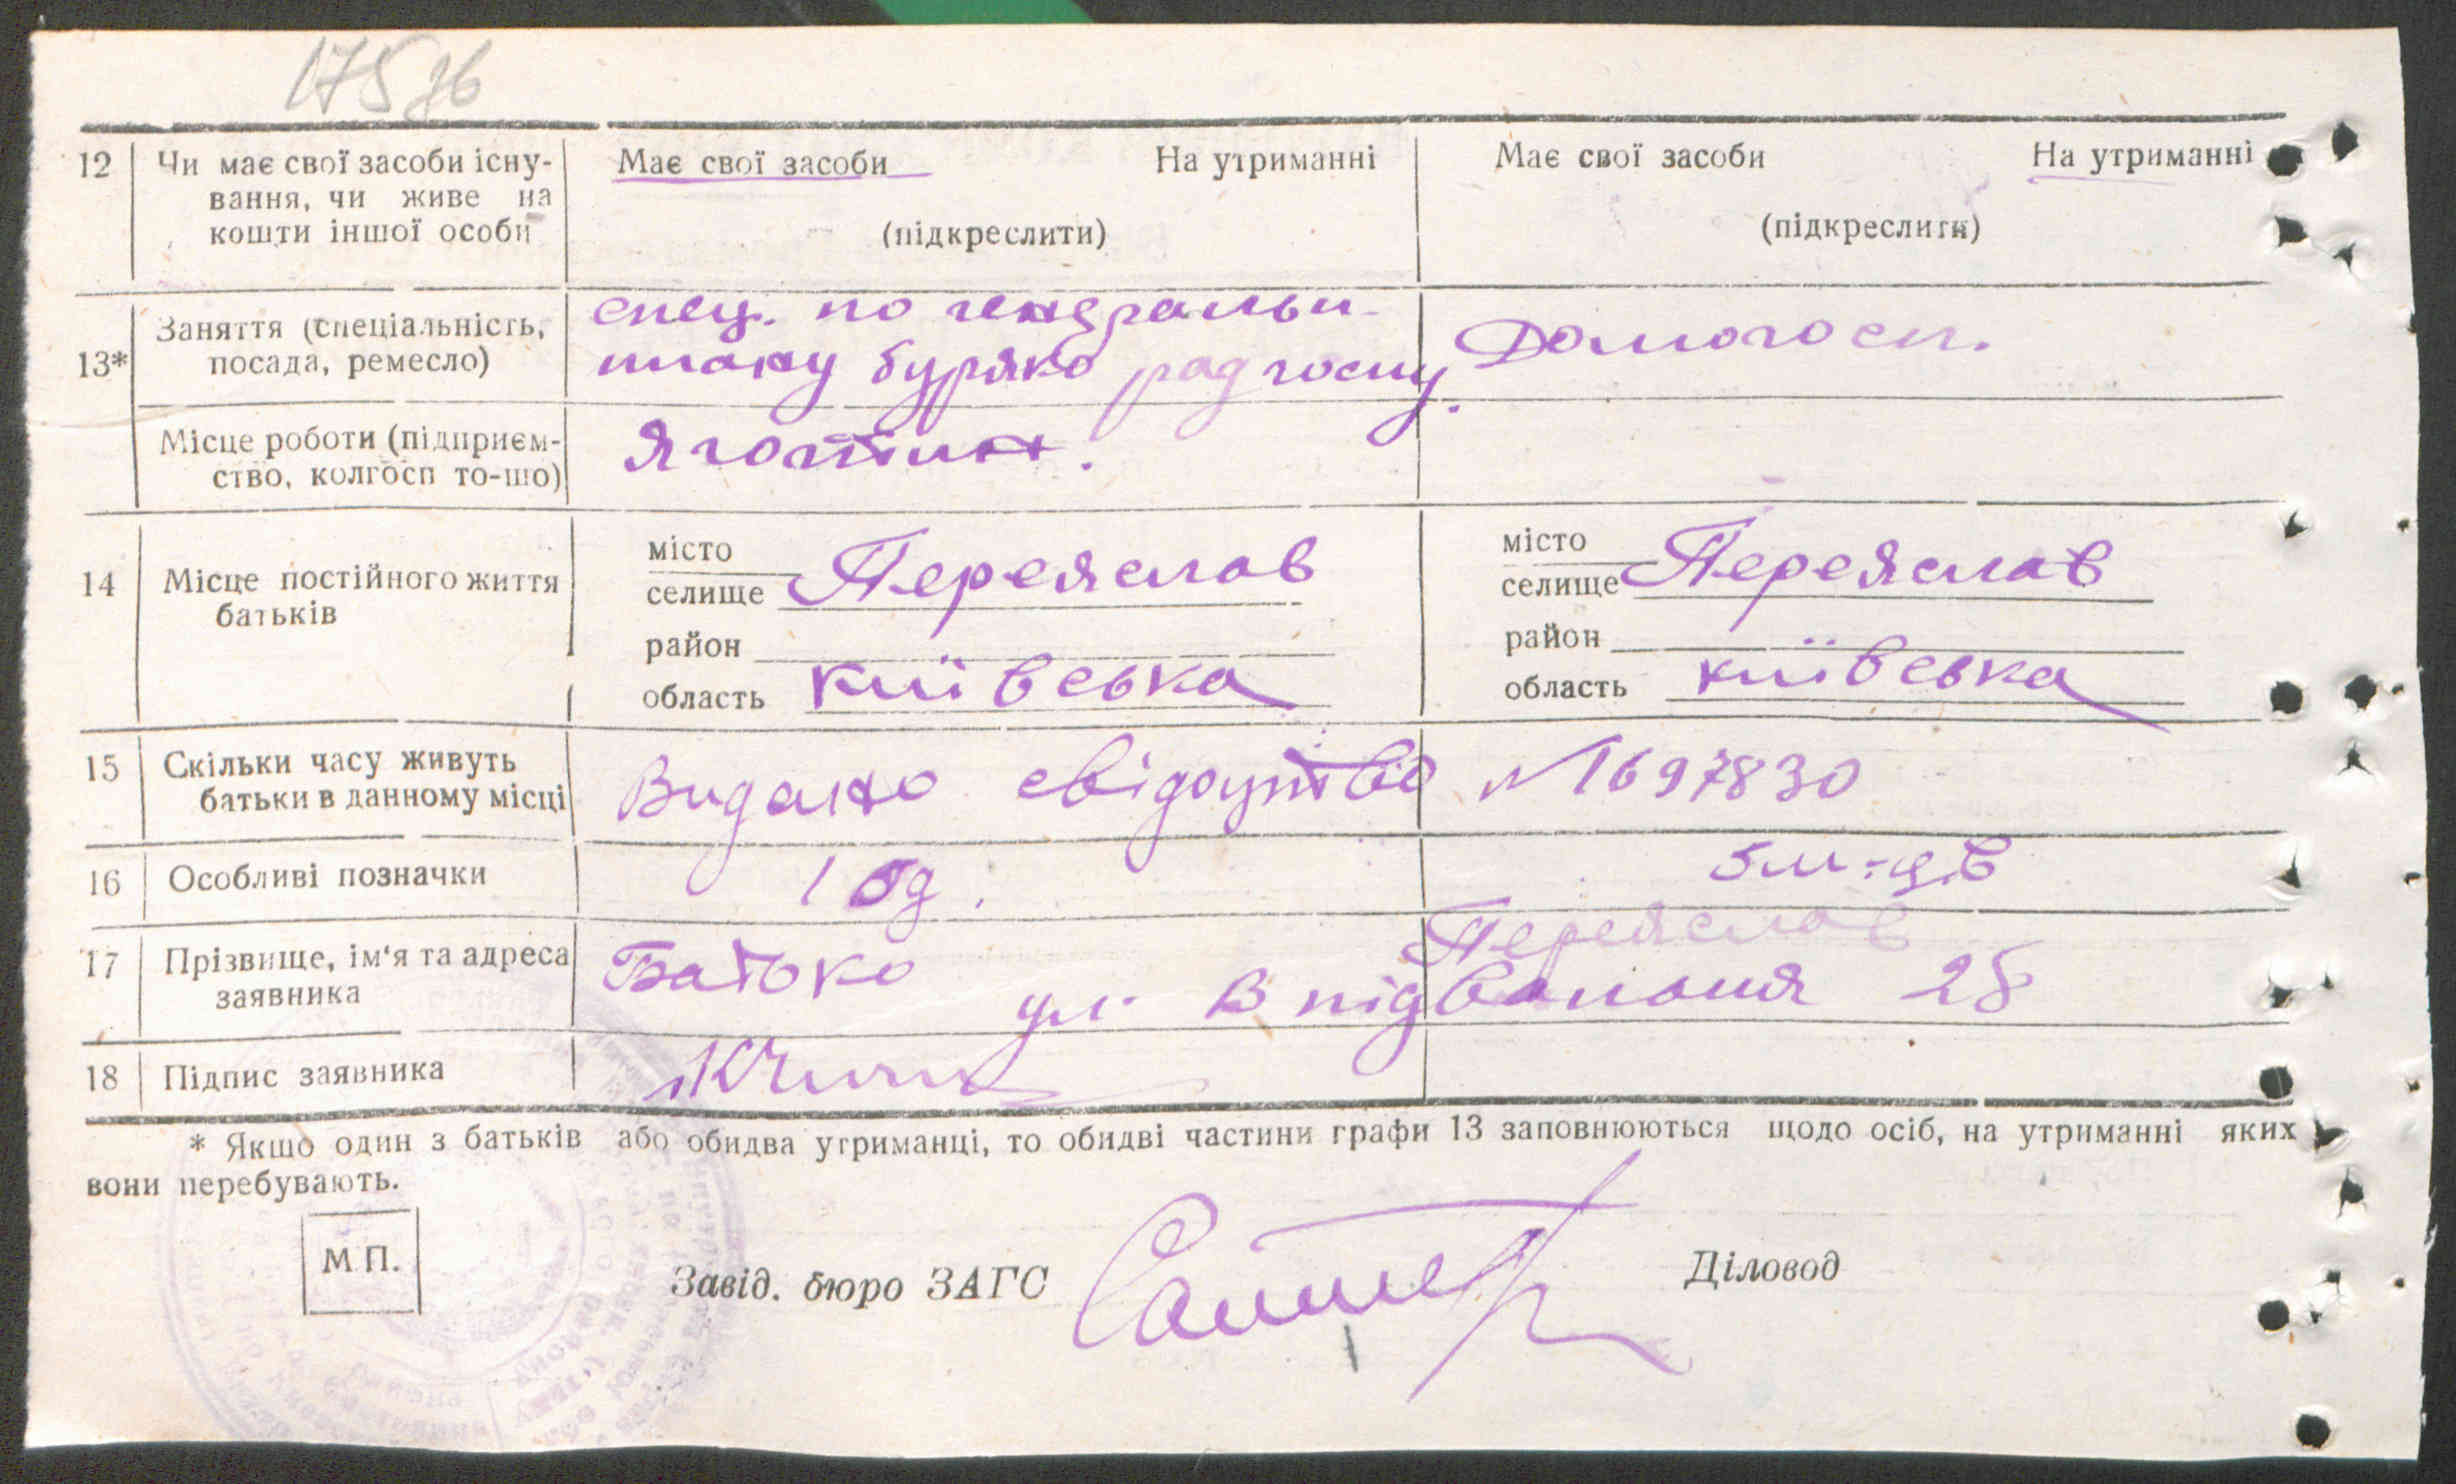 175 зв
12 Чи має свої засоби існу- Має свої засоби На утриманні Має свої засоби На утриманні
вання, чи живе на
кошти іншої особи (підкреслити) (підкреслити)
спец. по генеральн.
13* Заняття (спеціальність, Домогосп.
посада, ремесло) плану буряко радгоспу.
Місце роботи (підприєм- Яготин.
ство, колгосп то-що)
місто місто
14 Місце постійного життя селище Переяслав селище Переяслав
батьків
район район
область київська область київська
15 Скільки часу живуть Видано свідоцтво № 1697830
батьки в данному місці
16 Особливі позначки 1 5м-ців
17 Прізвище, ім'я та адреса Батько Переяслав
заявника ул. 28
18 Підпис заявника
* Якщо один з батьків або обидва утриманці, то обидві частини графи 13 заповнюються щодо осіб, на утриманні яких
вони перебувають.
М.П.
Завід. бюро ЗАГС Діловод